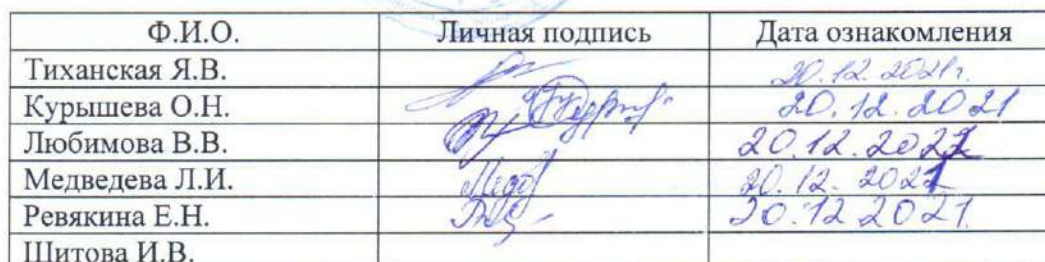 Ф.И.О. Личная подпись Дата ознакомления
Тиханская Я.В. 20.12.2021г.
Курышева О.Н. 20.12.2021
Любимова В.В. 20.12.2021
Медведева Л.И. 20.12.2021
Ревякина Е.Н. 20.12.2021
Шитова И.В.